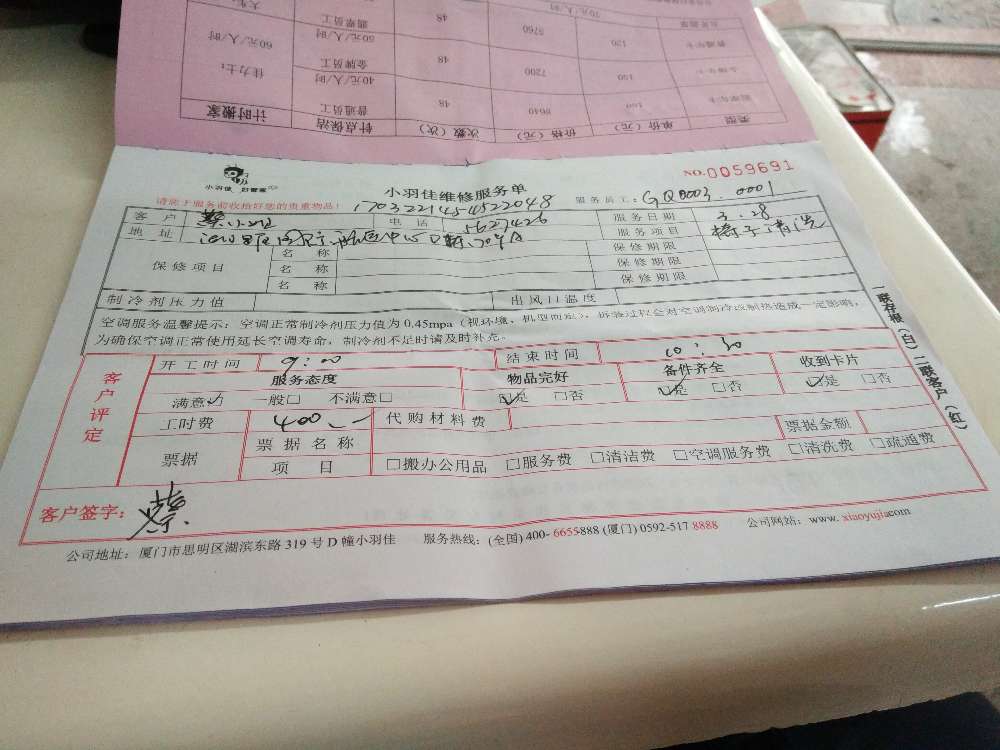 大客户
70元/人/时
计时搬家
针点保洁
次数（次）
价格（元）
单价（元）
类别
普通员工
40元/人/时
48
8640
180
佳力士:
金牌员工
50元/人/时
48
7200
150
60元/人/时
48
5760
120
小羽佳 好管家
小羽佳维修服务单
NO.0059691
请您于服务前收拾好您的贵重物品!
1703221454522048
服务员工: GQ0003.0001
客户 蔡小姐 电话 5627426 服务日期 3.28
地址 服务项目 椅子清洗
保修项目 名称 保修期限
名称 保修期限
名称 保修期限
制冷剂压力值 出风口温度
空调服务温馨提示: 空调正常制冷剂压力值为0.45mpa（视环境、机型而定），拆装过程会对空调制冷或制热造成一定影响，
为确保空调正常使用延长空调寿命，制冷剂不足时请及时补充。
一联存根（白）二联客户（红）
客户评定
开工时间 9:00 结束时间 10:30
服务态度 物品完好 备件齐全 收到卡片
满意☑ 一般□ 不满意□ ☑是 □否 ☑是 □否 ☑是 □否
工时费 400.— 代购材料费
票据 票据名称 票据金额
项目 □搬办公用品 □服务费 □清洁费 □空调服务费 □清洗费 □疏通费
客户签字: 蔡
公司地址: 厦门市思明区湖滨东路319号D幢小羽佳 服务热线: (全国) 400-6655888 (厦门) 0592-517 8888 公司网站: www.xiaoyujia.com